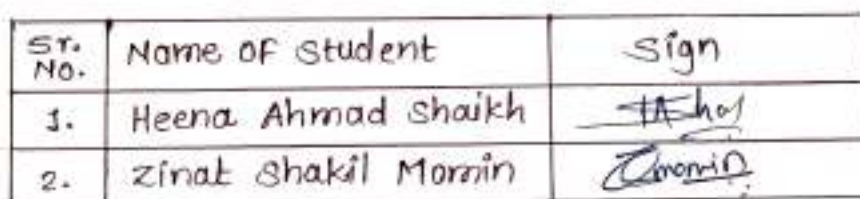 Sr. No. Name of Student Sign
1. Heena Ahmad Shaikh
2. Zinat Shakil Momin Zmomin